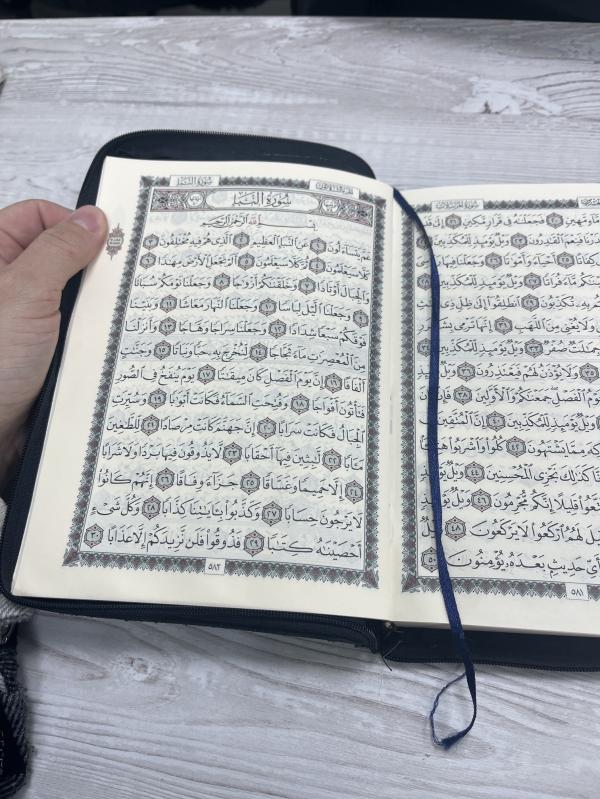 سُورَةُ المُرْسَلَاتِ
مَّآءٍ مَّهِينٍ ٢٠ فَجَعَلْنَٰهُ فِي قَرَارٍ مَّكِينٍ ٢١ إِلَىٰ قَدَرٍ
فَقَدَرْنَا فَنِعْمَ ٱلْقَٰدِرُونَ ٢٣ وَيْلٌ يَوْمَئِذٍ لِّلْمُكَذِّبِينَ ٢٤
كِفَاتًا ٢٥ أَحْيَآءً وَأَمْوَٰتًا ٢٦ وَجَعَلْنَا فِيهَا
مَّآءً فُرَاتًا ٢٧ وَيْلٌ يَوْمَئِذٍ لِّلْمُكَذِّبِينَ ٢٨
بِهِۦ تُكَذِّبُونَ ٢٩ ٱنطَلِقُوٓا۟ إِلَىٰ ظِلٍّ ذِي
وَلَا يُغْنِي مِنَ ٱللَّهَبِ ٣١ إِنَّهَا تَرْمِي بِشَرَرٍ
جِمَٰلَتٌ صُفْرٌ ٣٣ وَيْلٌ يَوْمَئِذٍ لِّلْمُكَذِّبِينَ ٣٤
٣٥ وَلَا يُؤْذَنُ لَهُمْ فَيَعْتَذِرُونَ ٣٦ وَيْلٌ يَوْمَئِذٍ
ٱلْفَصْلِ جَمَعْنَٰكُمْ وَٱلْأَوَّلِينَ ٣٨ فَإِن كَانَ
وَيْلٌ يَوْمَئِذٍ لِّلْمُكَذِّبِينَ ٤٠ إِنَّ ٱلْمُتَّقِينَ
وَفَوَٰكِهَ مِمَّا يَشْتَهُونَ ٤٢ كُلُوا۟ وَٱشْرَبُوا۟ هَنِيٓـًٔا
إِنَّا كَذَٰلِكَ نَجْزِي ٱلْمُحْسِنِينَ ٤٤ وَيْلٌ يَوْمَئِذٍ
وَتَمَتَّعُوا۟ قَلِيلًا إِنَّكُم مُّجْرِمُونَ ٤٦ وَيْلٌ يَوْمَئِذٍ
قِيلَ لَهُمُ ٱرْكَعُوا۟ لَا يَرْكَعُونَ ٤٨ وَيْلٌ
فَبِأَيِّ حَدِيثٍۭ بَعْدَهُۥ يُؤْمِنُونَ ٥٠
٥٨١
الجُزْءُ الثَّلَاثُونَ سُورَةُ النَّبَإِ
سُورَةُ النَّبَإِ
بِسْمِ ٱللَّهِ ٱلرَّحْمَٰنِ ٱلرَّحِيمِ
عَمَّ يَتَسَآءَلُونَ ١ عَنِ ٱلنَّبَإِ ٱلْعَظِيمِ ٢ ٱلَّذِي هُمْ فِيهِ مُخْتَلِفُونَ ٣
كَلَّا سَيَعْلَمُونَ ٤ ثُمَّ كَلَّا سَيَعْلَمُونَ ٥ أَلَمْ نَجْعَلِ ٱلْأَرْضَ مِهَٰدًا ٦
وَٱلْجِبَالَ أَوْتَادًا ٧ وَخَلَقْنَٰكُمْ أَزْوَٰجًا ٨ وَجَعَلْنَا نَوْمَكُمْ سُبَاتًا
٩ وَجَعَلْنَا ٱلَّيْلَ لِبَاسًا ١٠ وَجَعَلْنَا ٱلنَّهَارَ مَعَاشًا ١١ وَبَنَيْنَا
فَوْقَكُمْ سَبْعًا شِدَادًا ١٢ وَجَعَلْنَا سِرَاجًا وَهَّاجًا ١٣ وَأَنزَلْنَا
مِنَ ٱلْمُعْصِرَٰتِ مَآءً ثَجَّاجًا ١٤ لِّنُخْرِجَ بِهِۦ حَبًّا وَنَبَاتًا ١٥ وَجَنَّٰتٍ
أَلْفَافًا ١٦ إِنَّ يَوْمَ ٱلْفَصْلِ كَانَ مِيقَٰتًا ١٧ يَوْمَ يُنفَخُ فِي ٱلصُّورِ
فَتَأْتُونَ أَفْوَاجًا ١٨ وَفُتِحَتِ ٱلسَّمَآءُ فَكَانَتْ أَبْوَٰبًا ١٩ وَسُيِّرَتِ
ٱلْجِبَالُ فَكَانَتْ سَرَابًا ٢٠ إِنَّ جَهَنَّمَ كَانَتْ مِرْصَادًا ٢١ لِّلطَّٰغِينَ
مَـَٔابًا ٢٢ لَّٰبِثِينَ فِيهَآ أَحْقَابًا ٢٣ لَّا يَذُوقُونَ فِيهَا بَرْدًا وَلَا شَرَابًا
٢٤ إِلَّا حَمِيمًا وَغَسَّاقًا ٢٥ جَزَآءً وِفَاقًا ٢٦ إِنَّهُمْ كَانُوا۟
لَا يَرْجُونَ حِسَابًا ٢٧ وَكَذَّبُوا۟ بِـَٔايَٰتِنَا كِذَّابًا ٢٨ وَكُلَّ شَيْءٍ
أَحْصَيْنَٰهُ كِتَٰبًا ٢٩ فَذُوقُوا۟ فَلَن نَّزِيدَكُمْ إِلَّا عَذَابًا ٣٠
٥٨٢